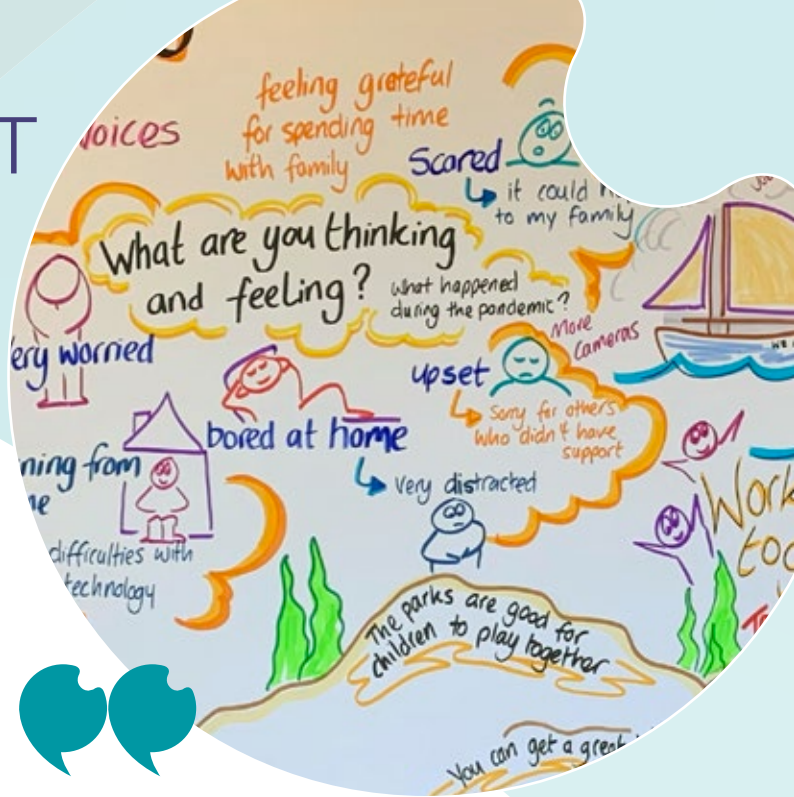 T
voices
feeling grateful
for spending time
with family
Scared
it could
to my family
What are you thinking
and feeling?
what happened
during the pandemic?
More
cameras
ery worried
upset
Sorry for others
who didn't have
support
bored at home
Very distracted
ning from
me
difficulties with
technology
Work
too
The parks are good for
children to play together
You can get a great